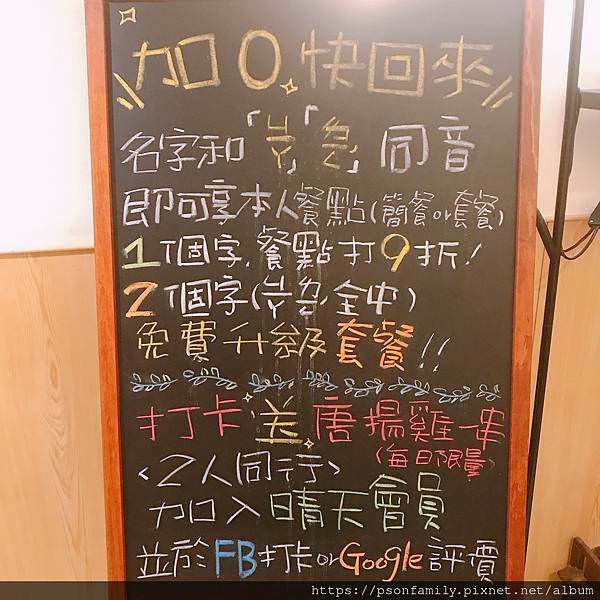 加0快回來
名字和「岩」「急」同音
即可享本人餐點(簡餐or套餐)
1個字,餐點打9折!
2個字(岩急全中)
免費升級套餐!!
打卡送唐揚雞一串
(每日限量)
<2人同行>
加入晴天會員
並於FB打卡orGoogle評價
https://psonfamily.pixnet.net/album